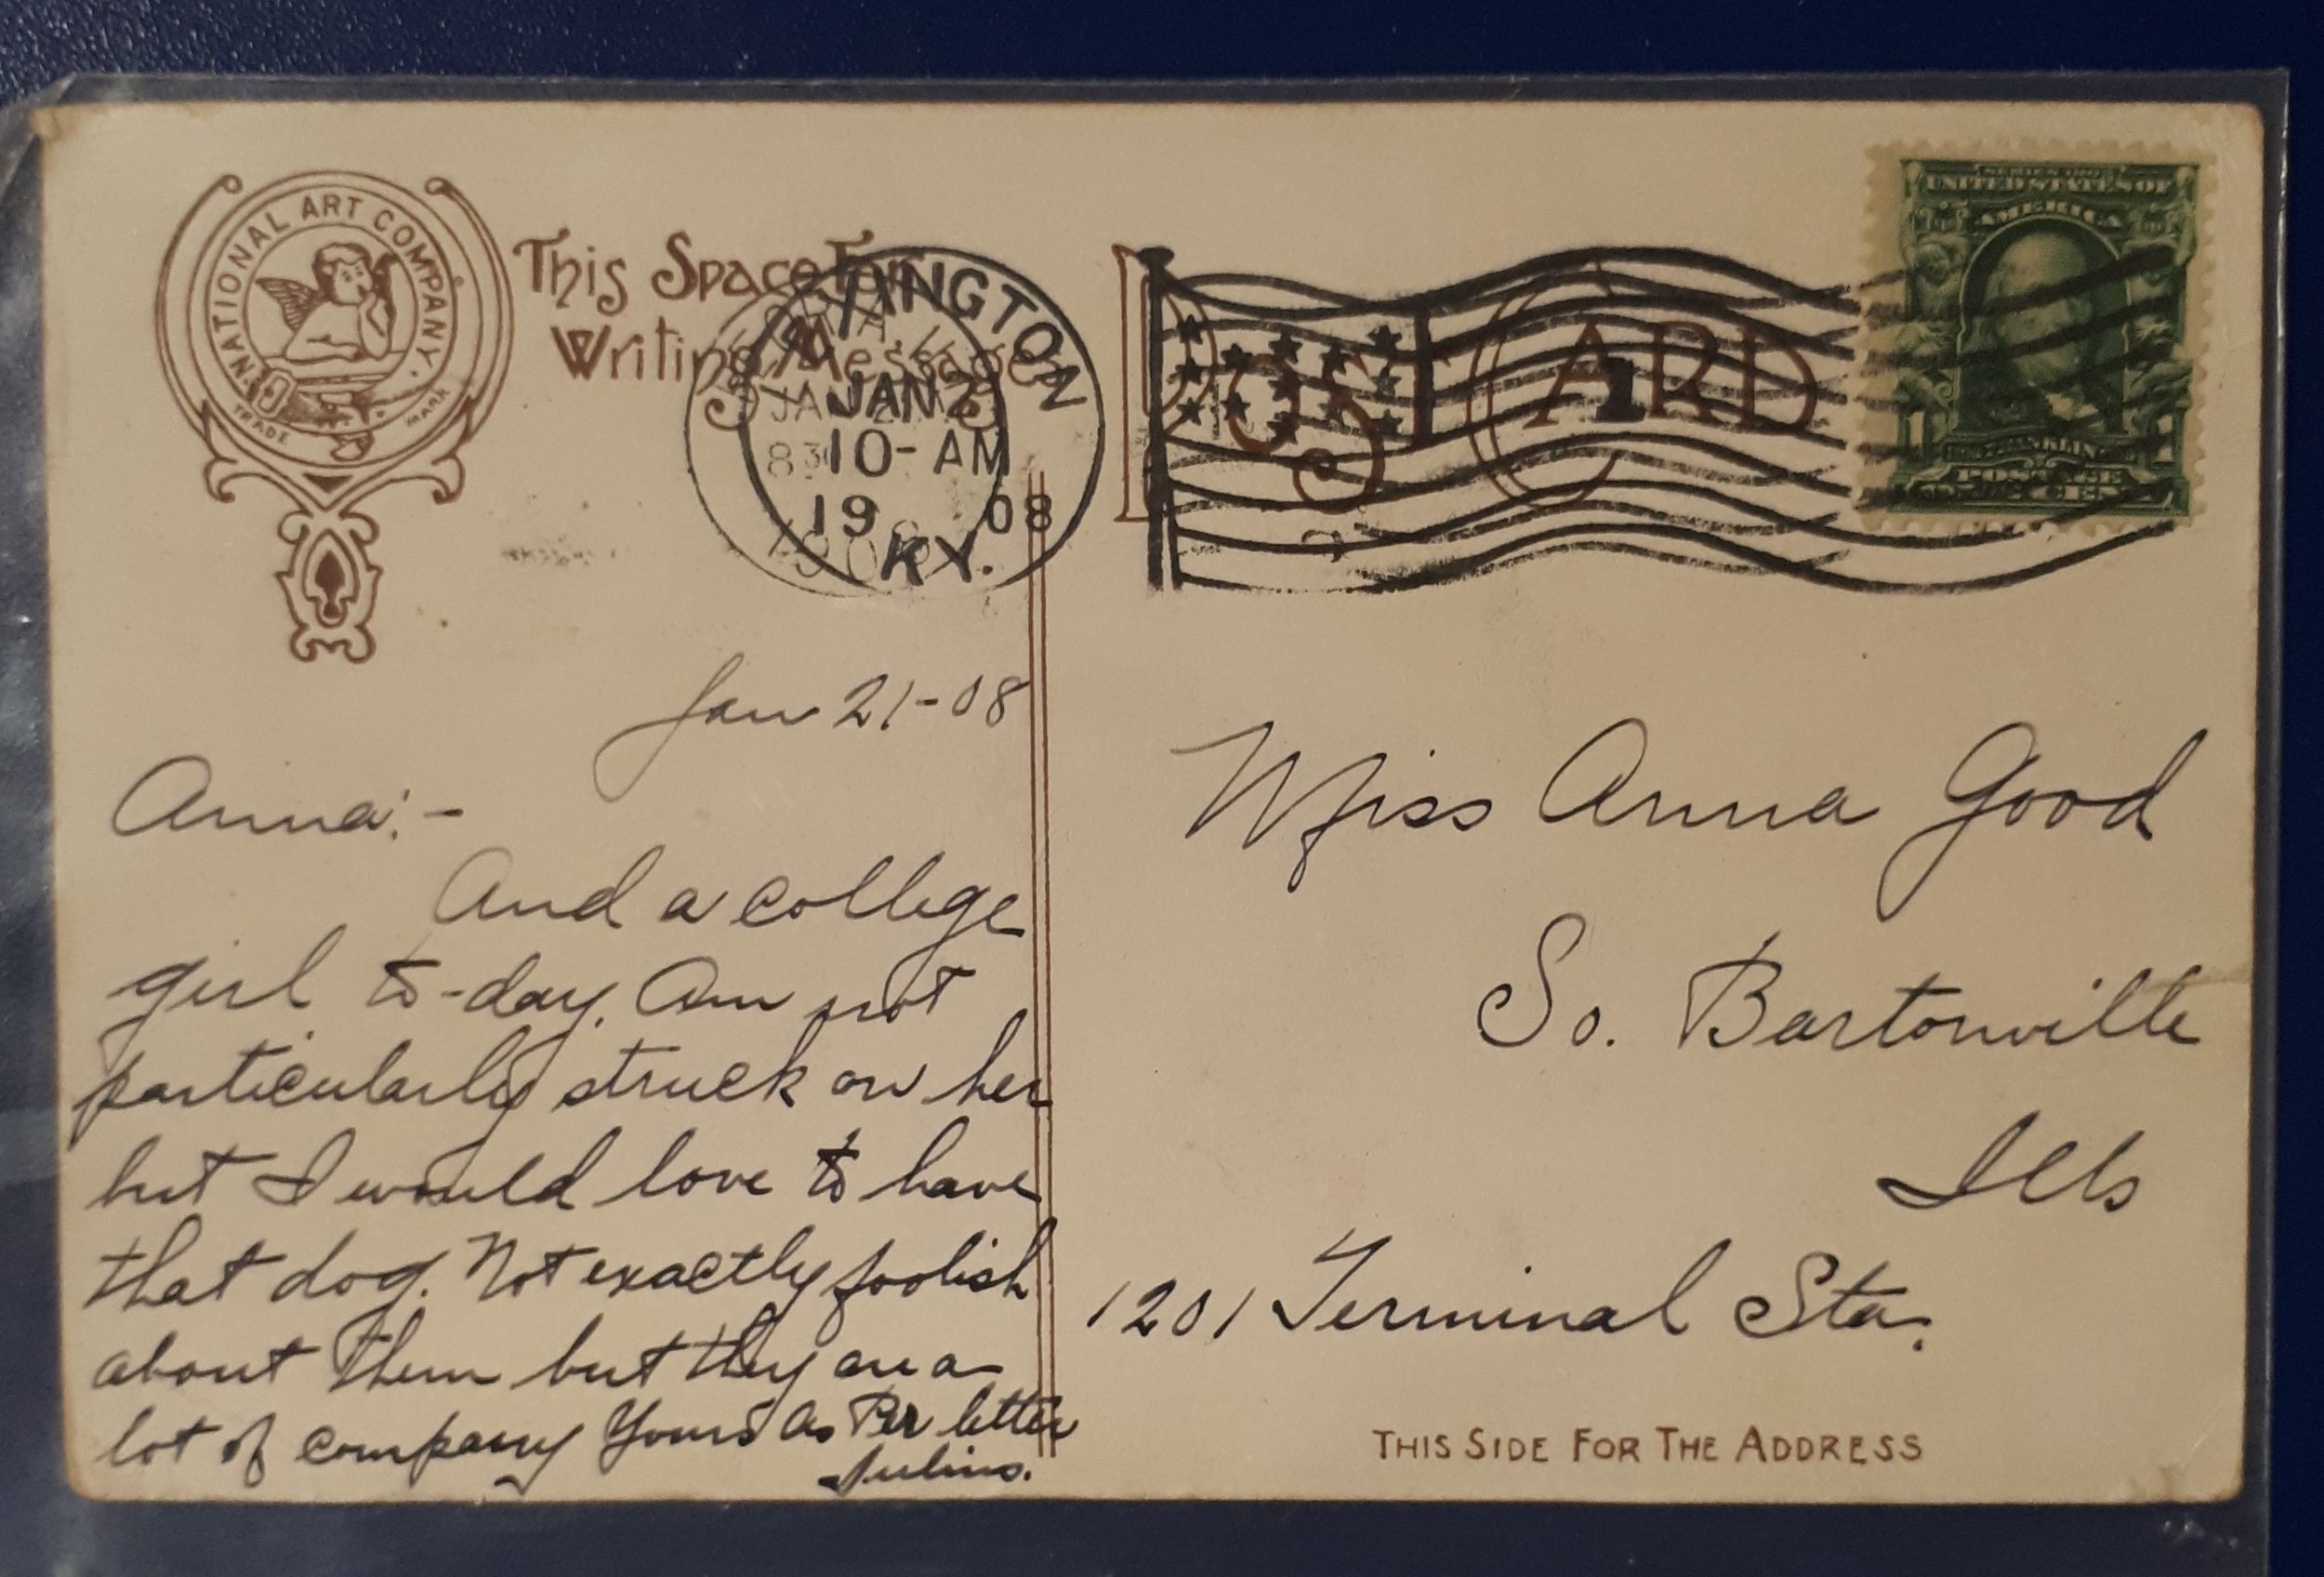 NATIONAL ART COMPANY.
TRADE MARK
This Space For
Writing Messages
POST CARD
XINGTON
JAN 2
10-AM
19 08
KY.
JAN 2
830
1908
1
SERIES 1902
UNITED STATES OF
AMERICA
1 FRANKLIN 1
POSTAGE
ONE CENT
Jan 21-08
Anna:-
And a college
girl to-day. Am not
particularly struck on her
but I would love to have
that dog. Not exactly foolish
about them but they are a
lot of company Yours as Per letter
Julius.
Miss Anna Good
So. Bartonville
Ills
1201 Terminal Sta.
THIS SIDE FOR THE ADDRESS